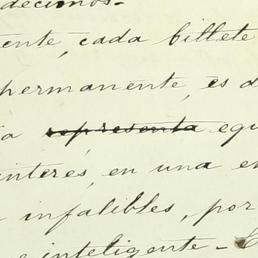 decimos.-
ente, cada billete
permanente, es d
a representa equ
interés, en una en
infalibles, por
e inteligente-